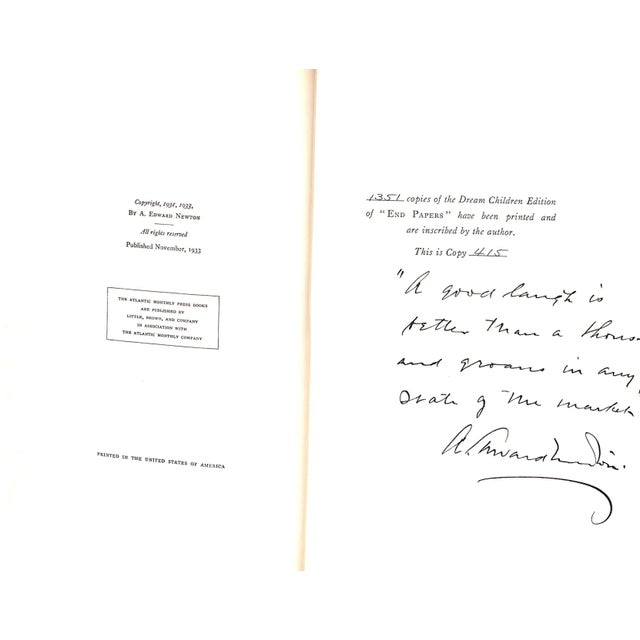 Copyright, 1931, 1933,
BY A. EDWARD NEWTON
All rights reserved
Published November, 1933
THE ATLANTIC MONTHLY PRESS BOOKS
ARE PUBLISHED BY
LITTLE, BROWN, AND COMPANY
IN ASSOCIATION WITH
THE ATLANTIC MONTHLY COMPANY
PRINTED IN THE UNITED STATES OF AMERICA
1351 copies of the Dream Children Edition
of "END PAPERS" have been printed and
are inscribed by the author.
This is Copy 415
"A good laugh is
better than a thous
and groans in any
state of the market
A. Edward Newton.